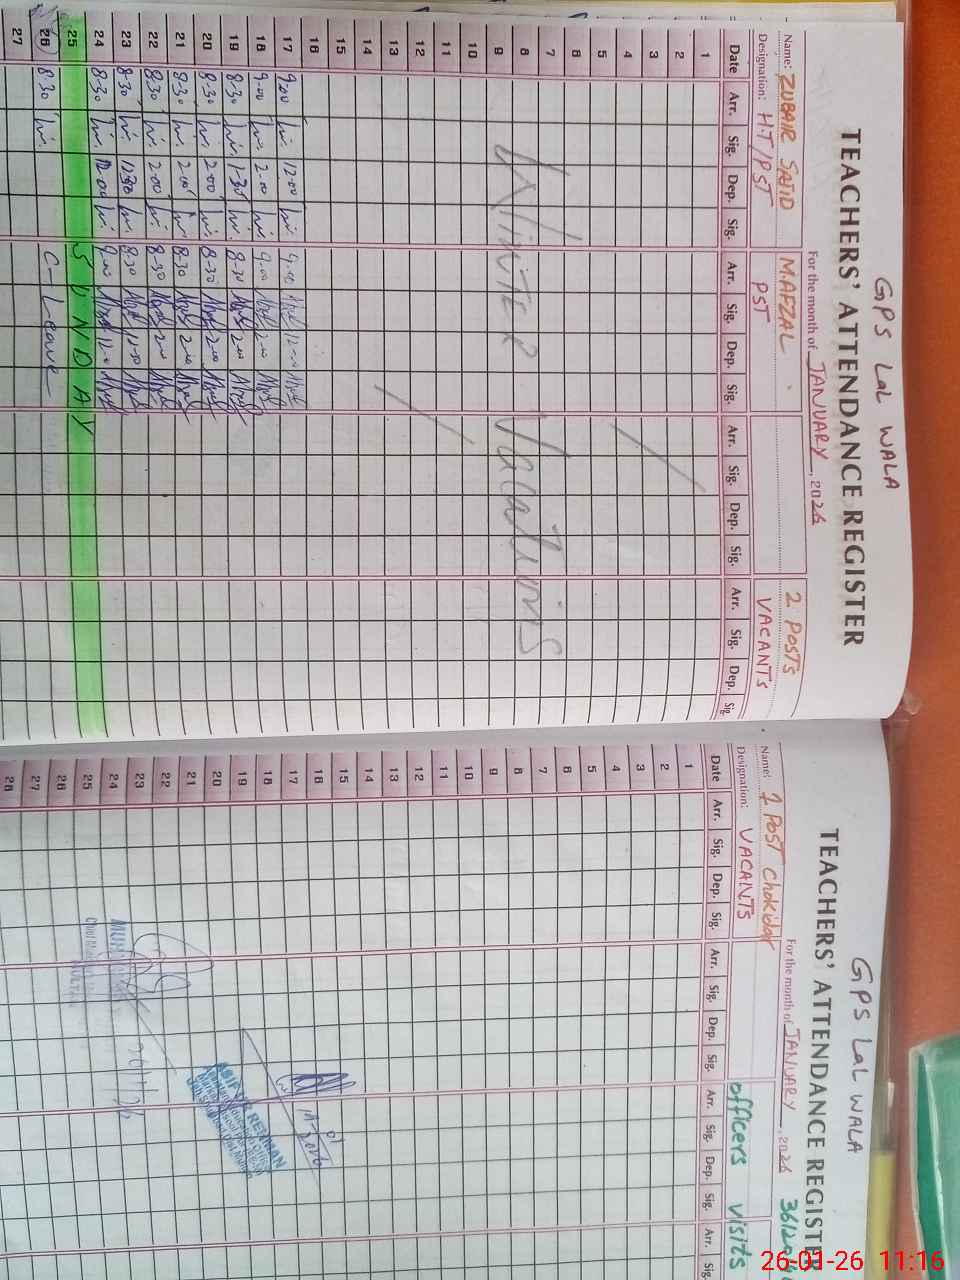 GPS LAL WALA
TEACHERS' ATTENDANCE REGISTER
For the month of JANUARY, 2026
Name: ZUBAIR SAJID M.AFZAL 2 POSTS
Designation: H.T/PST PST VACANTS
Date Arr. Sig. Dep. Sig. Arr. Sig. Dep. Sig. Arr. Sig. Dep. Sig. Arr. Sig. Dep. Sig.
1
2
3
4
5
6
7
8
9
Winter Vacations
10
11
12
13
14
15
16
17 9:00 12:00 9:00
18 9:00 2:00 9:00 2:00
19 8:30 1:30 8:30 2:00
20 8:30 2:00 8:30 2:00
21 8:30 2:00 8:30 2:00
22 8:30 2:00 8:30 2:00
23 8:30 12:30 8:30
24 8:30 12:00 9:00 12:00
25 SUNDAY
26 8:30 C-Leave
27
GPS LAL WALA
TEACHERS' ATTENDANCE REGISTER
For the month of JANUARY, 2026
Name: 1 POST Chokidar
Designation: VACANTS officers visits
Date Arr. Sig. Dep. Sig. Arr. Sig. Dep. Sig. Arr. Sig. Dep. Sig. Arr.
1
2
3
4
5
6
7
8
9
10
11
12
13
14
15
16
17
18
19
20
21
22
23
24
25
26
27
28
ASIF UR REHMAN
26-01-26 11:16